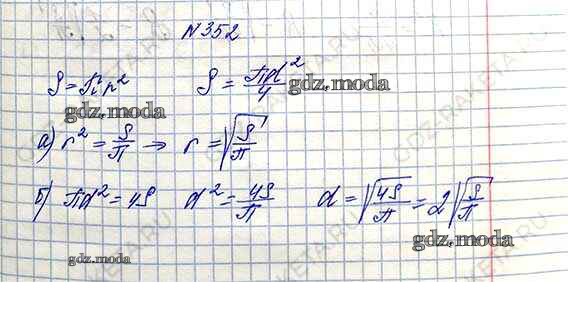 №352
S = πr² S = πd²/4 gdz.moda
gdz.moda
а) r² = S/π → r = √(S/π)
б) πd² = 4S d² = 4S/π d = √(4S/π) = 2√(S/π)
gdz.moda
gdz.moda